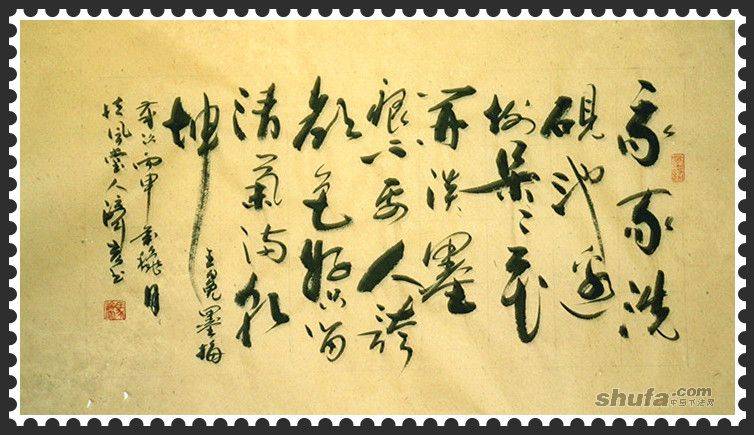 我家洗
硯池边
树朵々花
开淡墨
痕不要人誇
颜色好只留
清氣满乾
坤
王冕墨梅
岁次丙申月
风堂人书
shufa.com
中国书法网